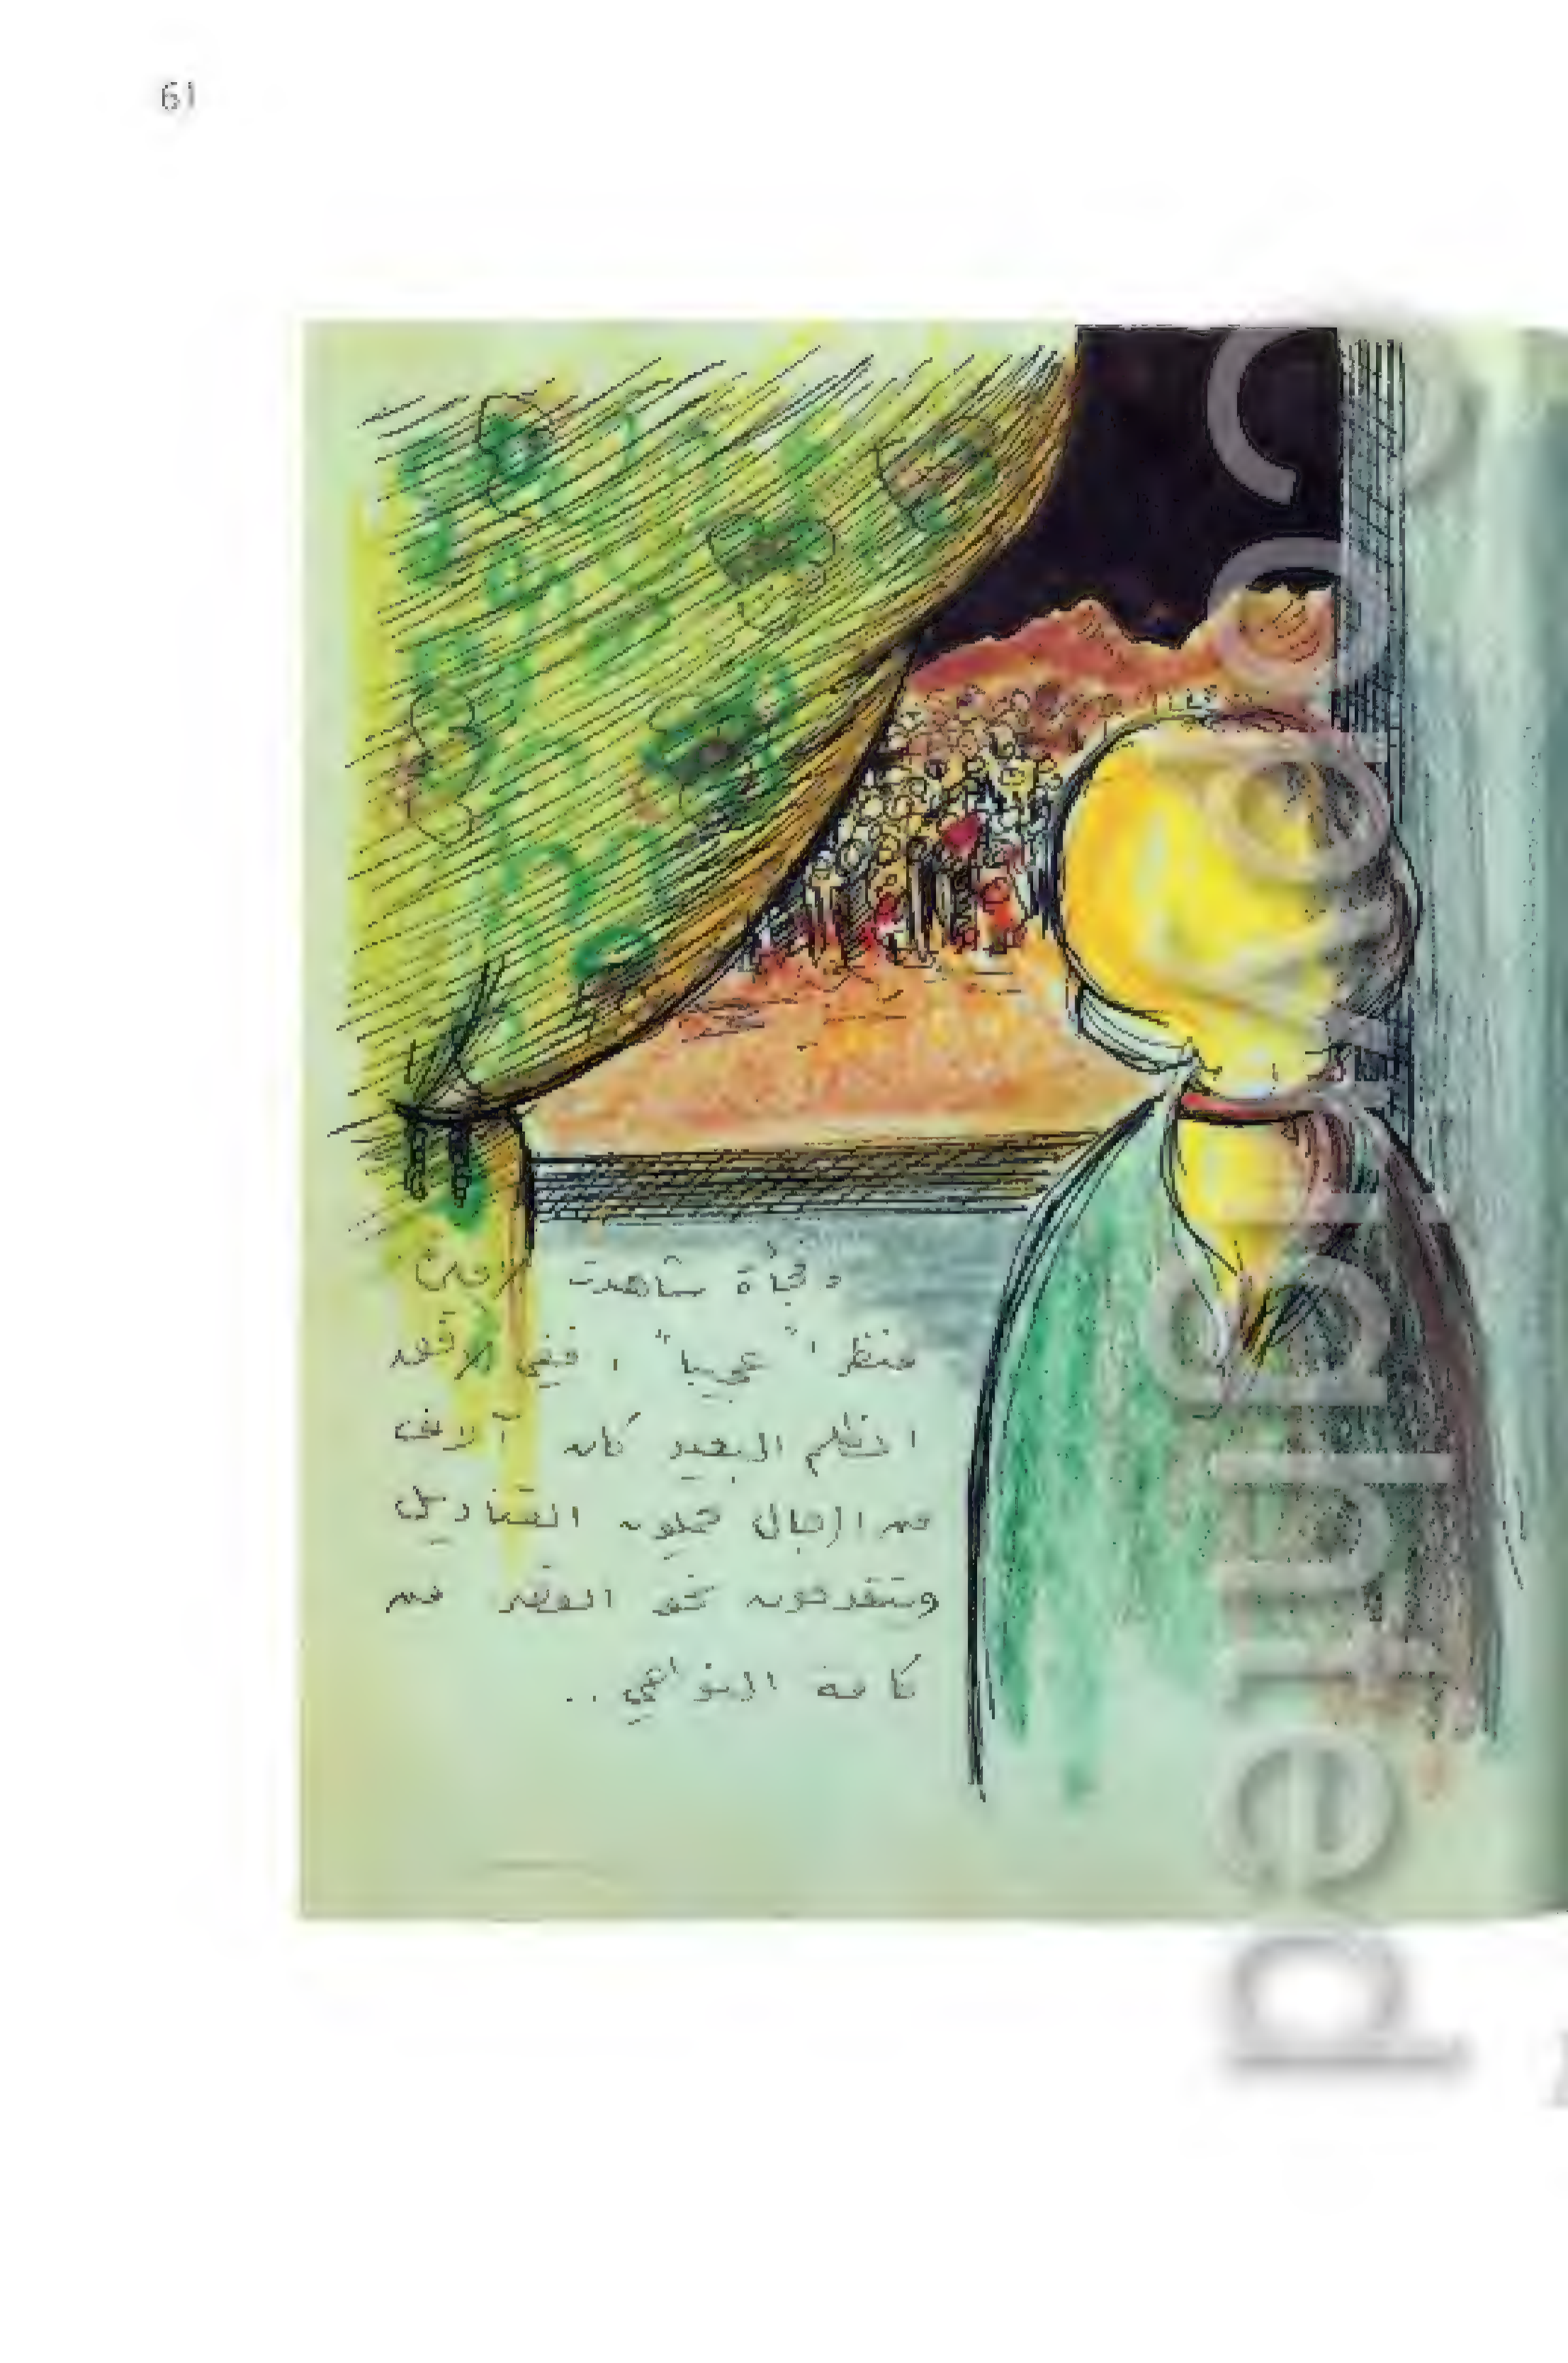 61
وفجأة شاهدت الأميرة
منظرا" عجيبا" ، ففي الأفق
المظلم البعيد كان آلاف
من الرجال يحملون القناديل
ويتقدمون نحو القصر من
كافة النواحي ..